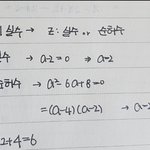 실수 → z: 실수 or 순허수
실수 → a-2=0 ⇒ a=2
순허수 → a² 6a+8=0
=(a-4)(a-2) → a=2
2+4=6